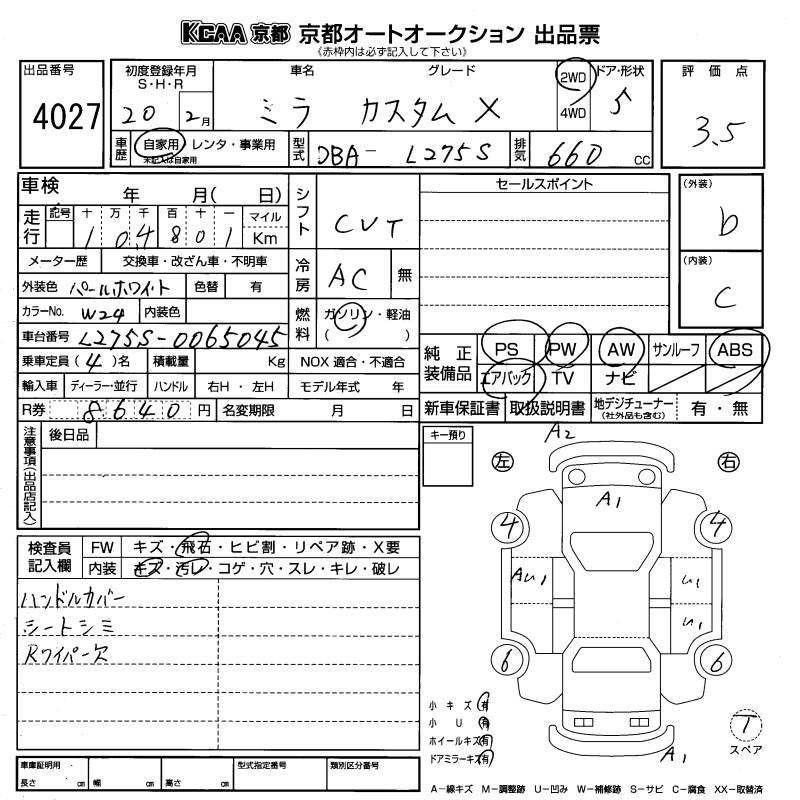 KCAA 京都 京都オートオークション 出品票
《赤枠内は必ず記入して下さい》
出品番号
4027
初度登録年月 S・H・R
20 2月
車名 グレード
ミラ カスタム X
2WD
4WD
ドア・形状
5
評価点
3.5
車歴
自家用 レンタ・事業用
未記入は自家用
型式
DBA- L275S
排気
660 cc
車検 年 月( 日)
走行
記号 十 万 千 百 十 一 マイル
1 0 4 8 0 1 Km
メーター歴 交換車・改ざん車・不明車
外装色 パールホワイト 色替 有
カラーNo. W24 内装色
車台番号 L275S-0065045
乗車定員 (4)名 積載量 Kg NOX 適合・不適合
輸入車 ディーラー・並行 ハンドル 右H・左H モデル年式 年
R券 8640円 名変期限 月 日
シフト
CVT
冷房
AC 無
燃料
ガソリン・軽油
( )
セールスポイント
(外装)
b
(内装)
C
純正装備品
PS PW AW サンルーフ ABS
エアバック TV ナビ
新車保証書 取扱説明書 地デジチューナー (社外品も含む) 有・無
注意事項(出品店記入)
後日品
キー預り
検査員記入欄
FW キズ・飛石・ヒビ割・リペア跡・X要
内装 キズ・汚レ・コゲ・穴・スレ・キレ・破レ
ハンドルカバー
シートシミ
Rワイパー欠
A2
左 右
A1
4 4
AU1 U1
U1
6 6
小キズ 有
小U 有
ホイールキズ 有
ドアミラーキズ 有
A1
T
スペア
車庫証明用 型式指定番号 類別区分番号
長さ cm 幅 cm 高さ cm
A−線キズ M−調整跡 U−凹み W−補修跡 S−サビ C−腐食 XX−取替済